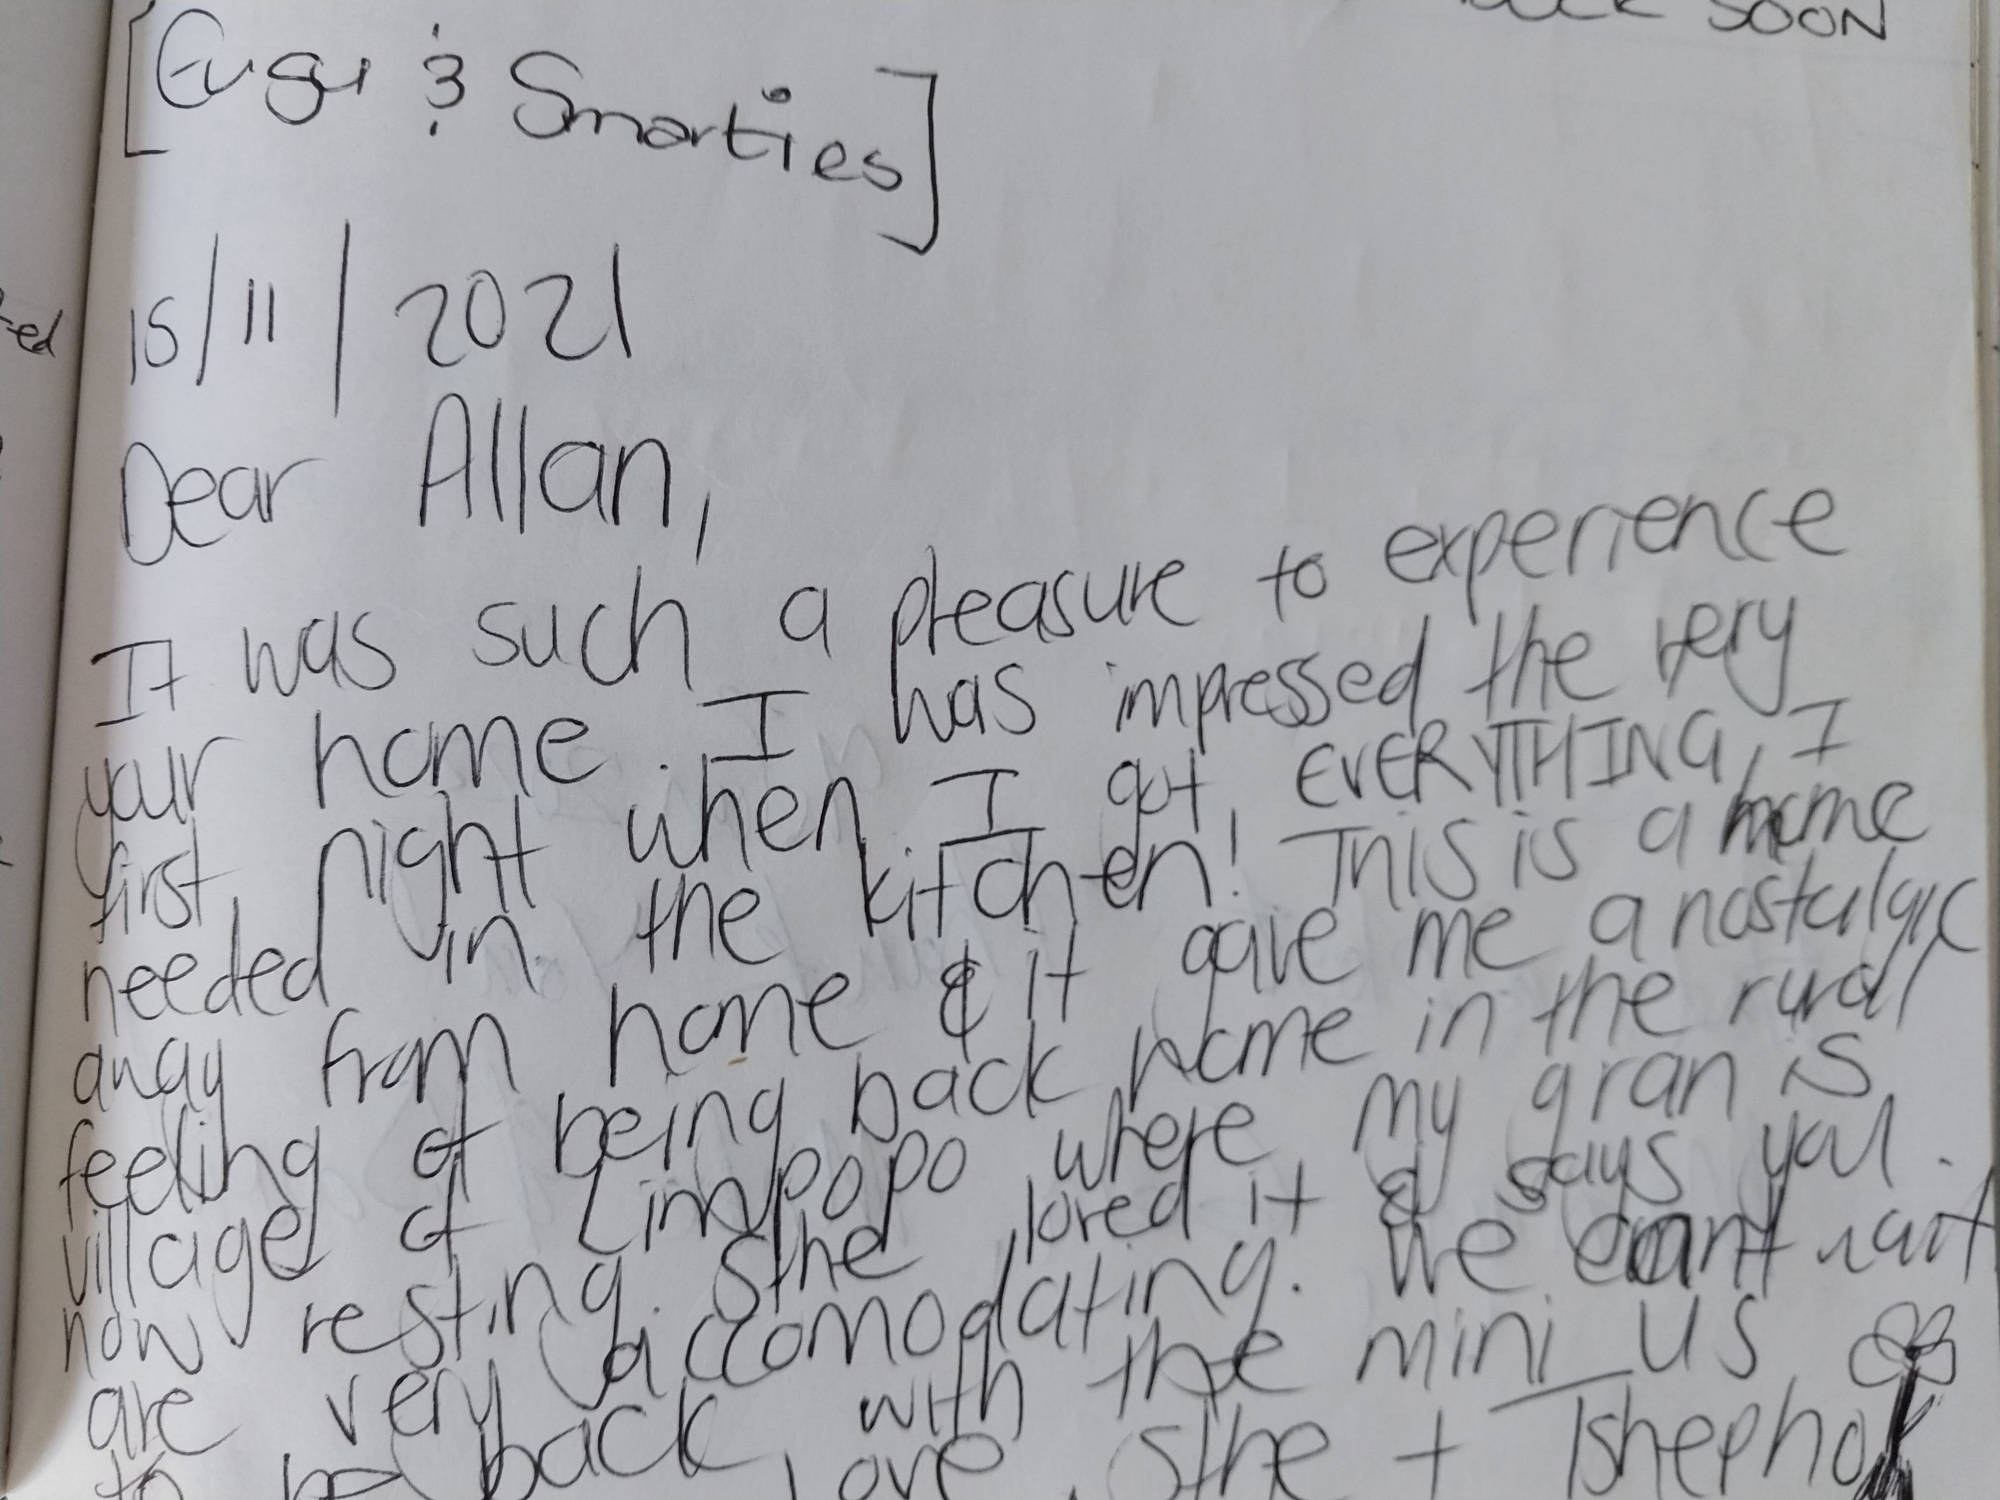 SOON
[Euge & Smarties]
-ed
15/11/2021
Dear Allan,
It was such a pleasure to experience
your home. I was impressed the very
first night when I got, EVERYTHING, I
needed in the kitchen! This is a home
away from home & it gave me a nostalgic
feeling of being back home in the rural
village of Limpopo where my gran is
now resting. Sthe loved it & says you
are very accomodating. We cant wait
to be back with the mini us
Love, Sthe + Tshepho